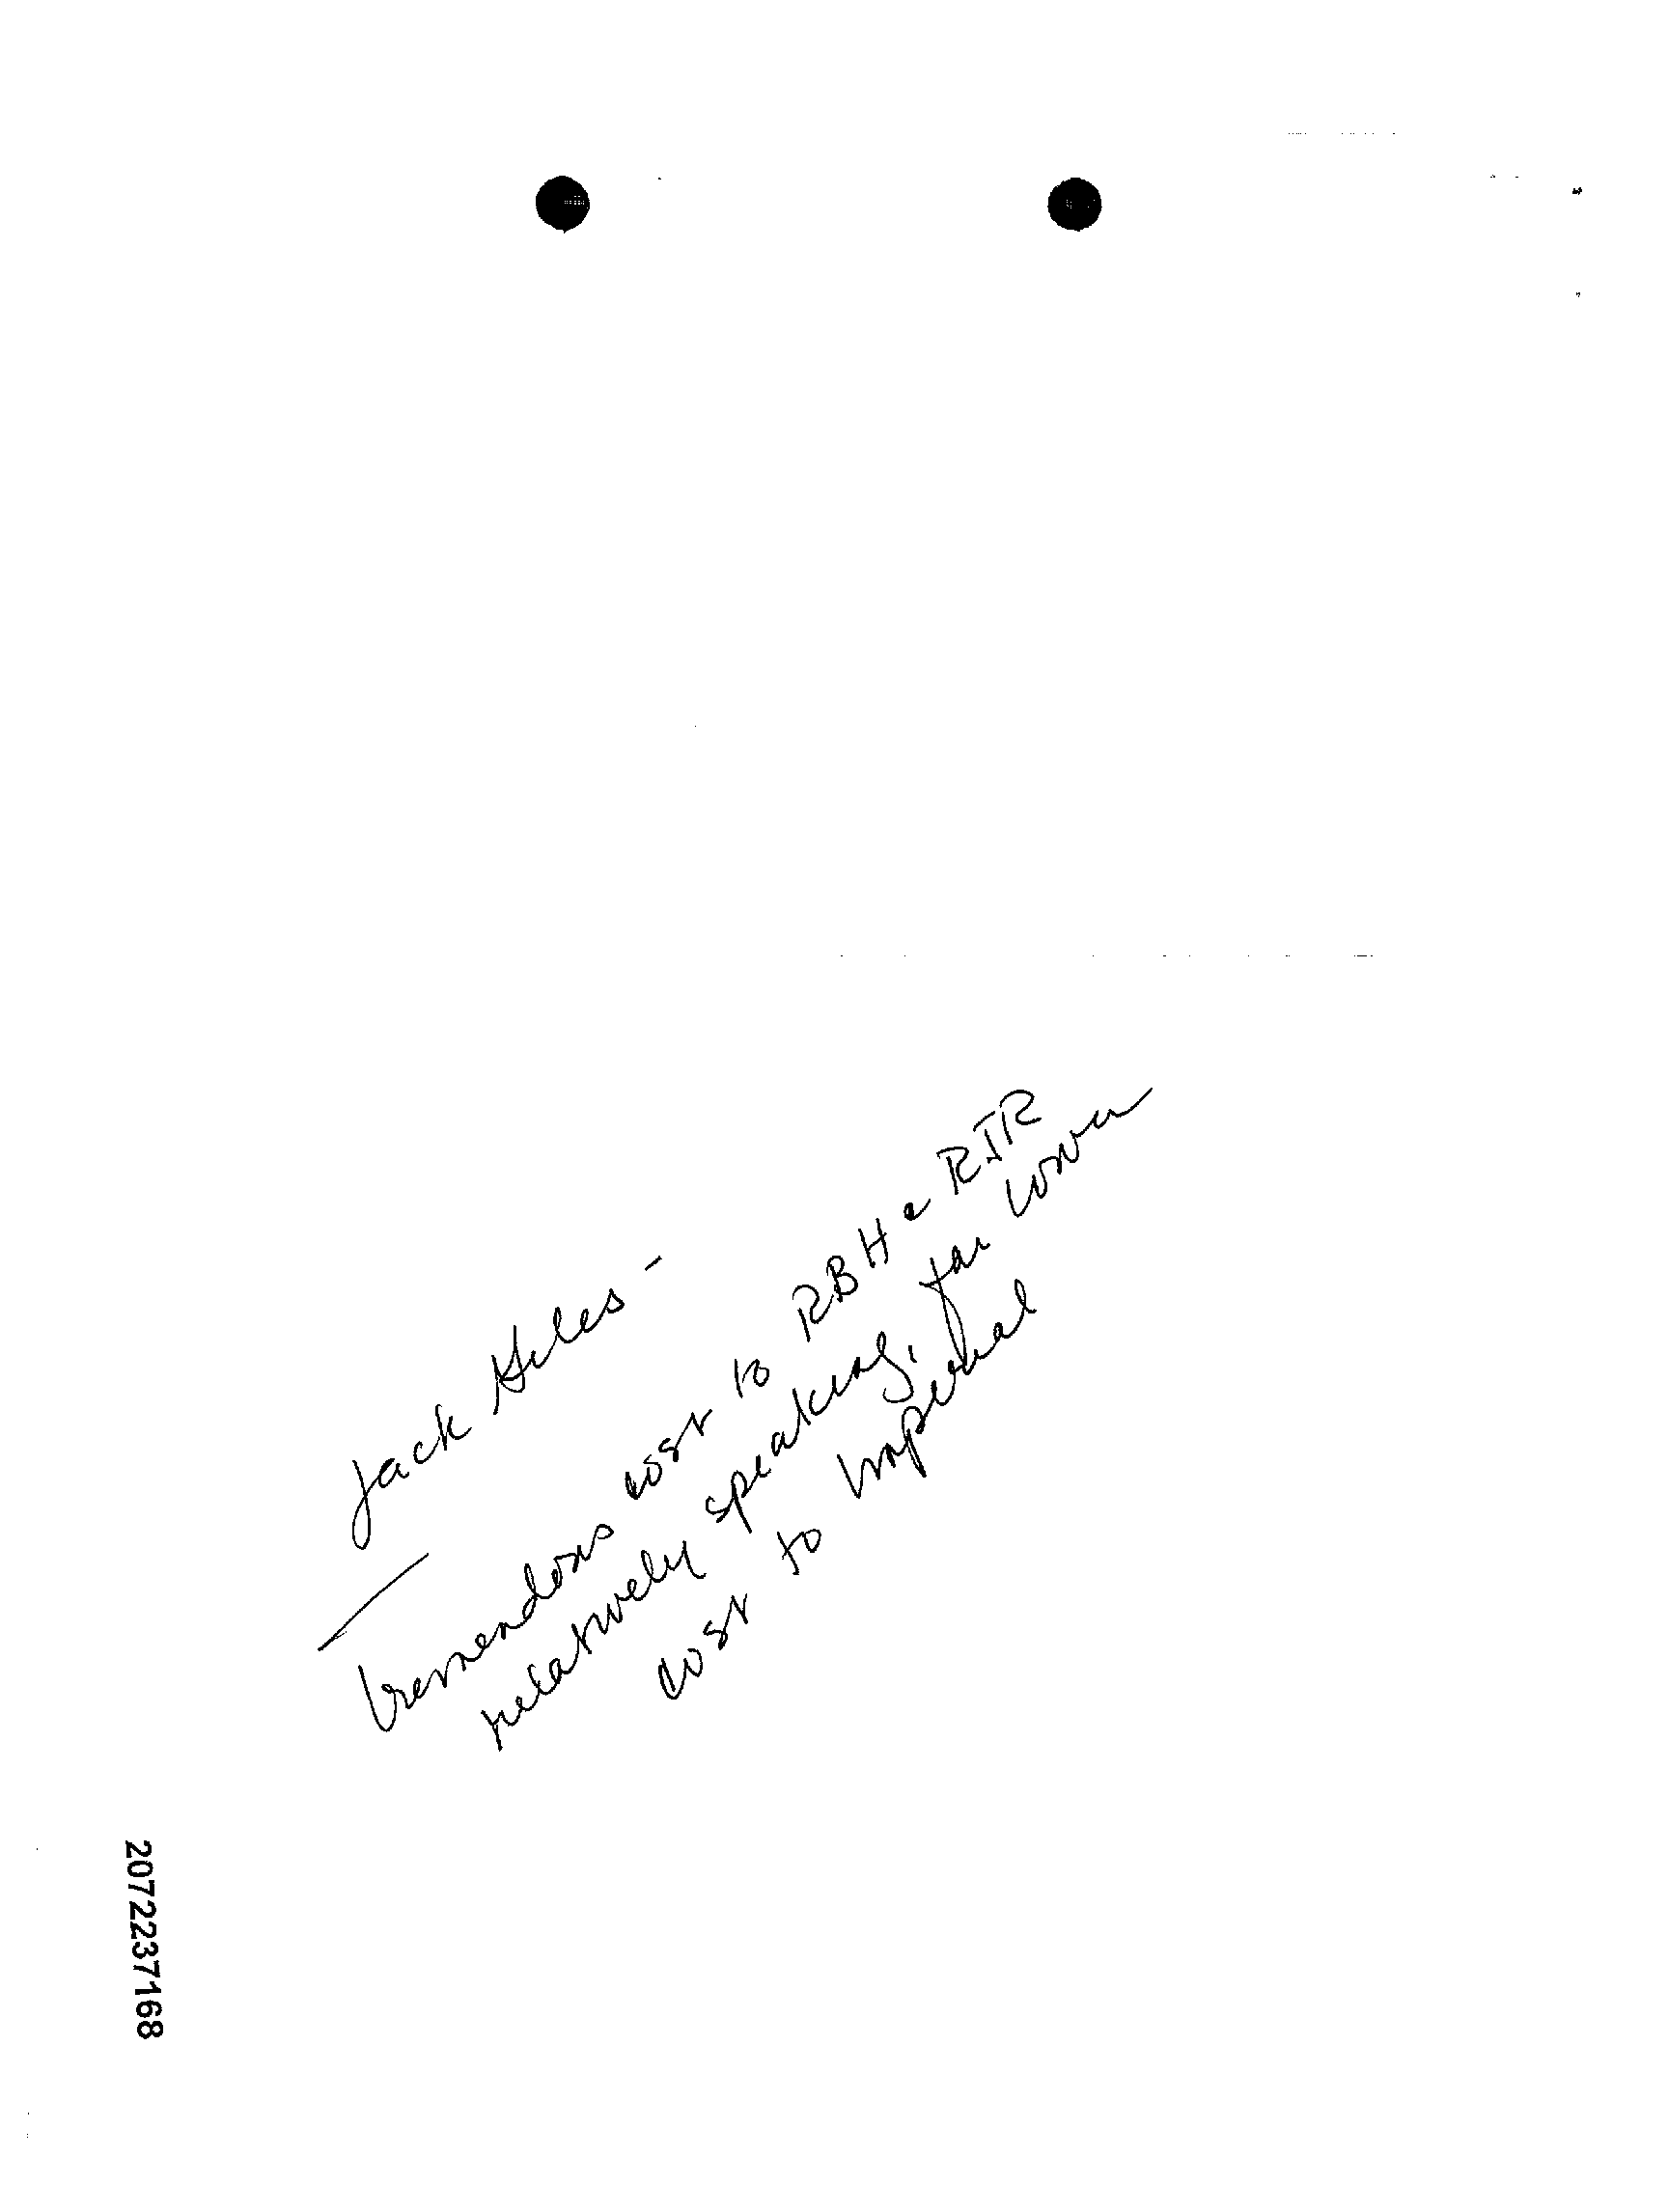 Jack
tremendous cost to RBH & RJR
relatively speaking, far lower
cost to Imperial
2072237168